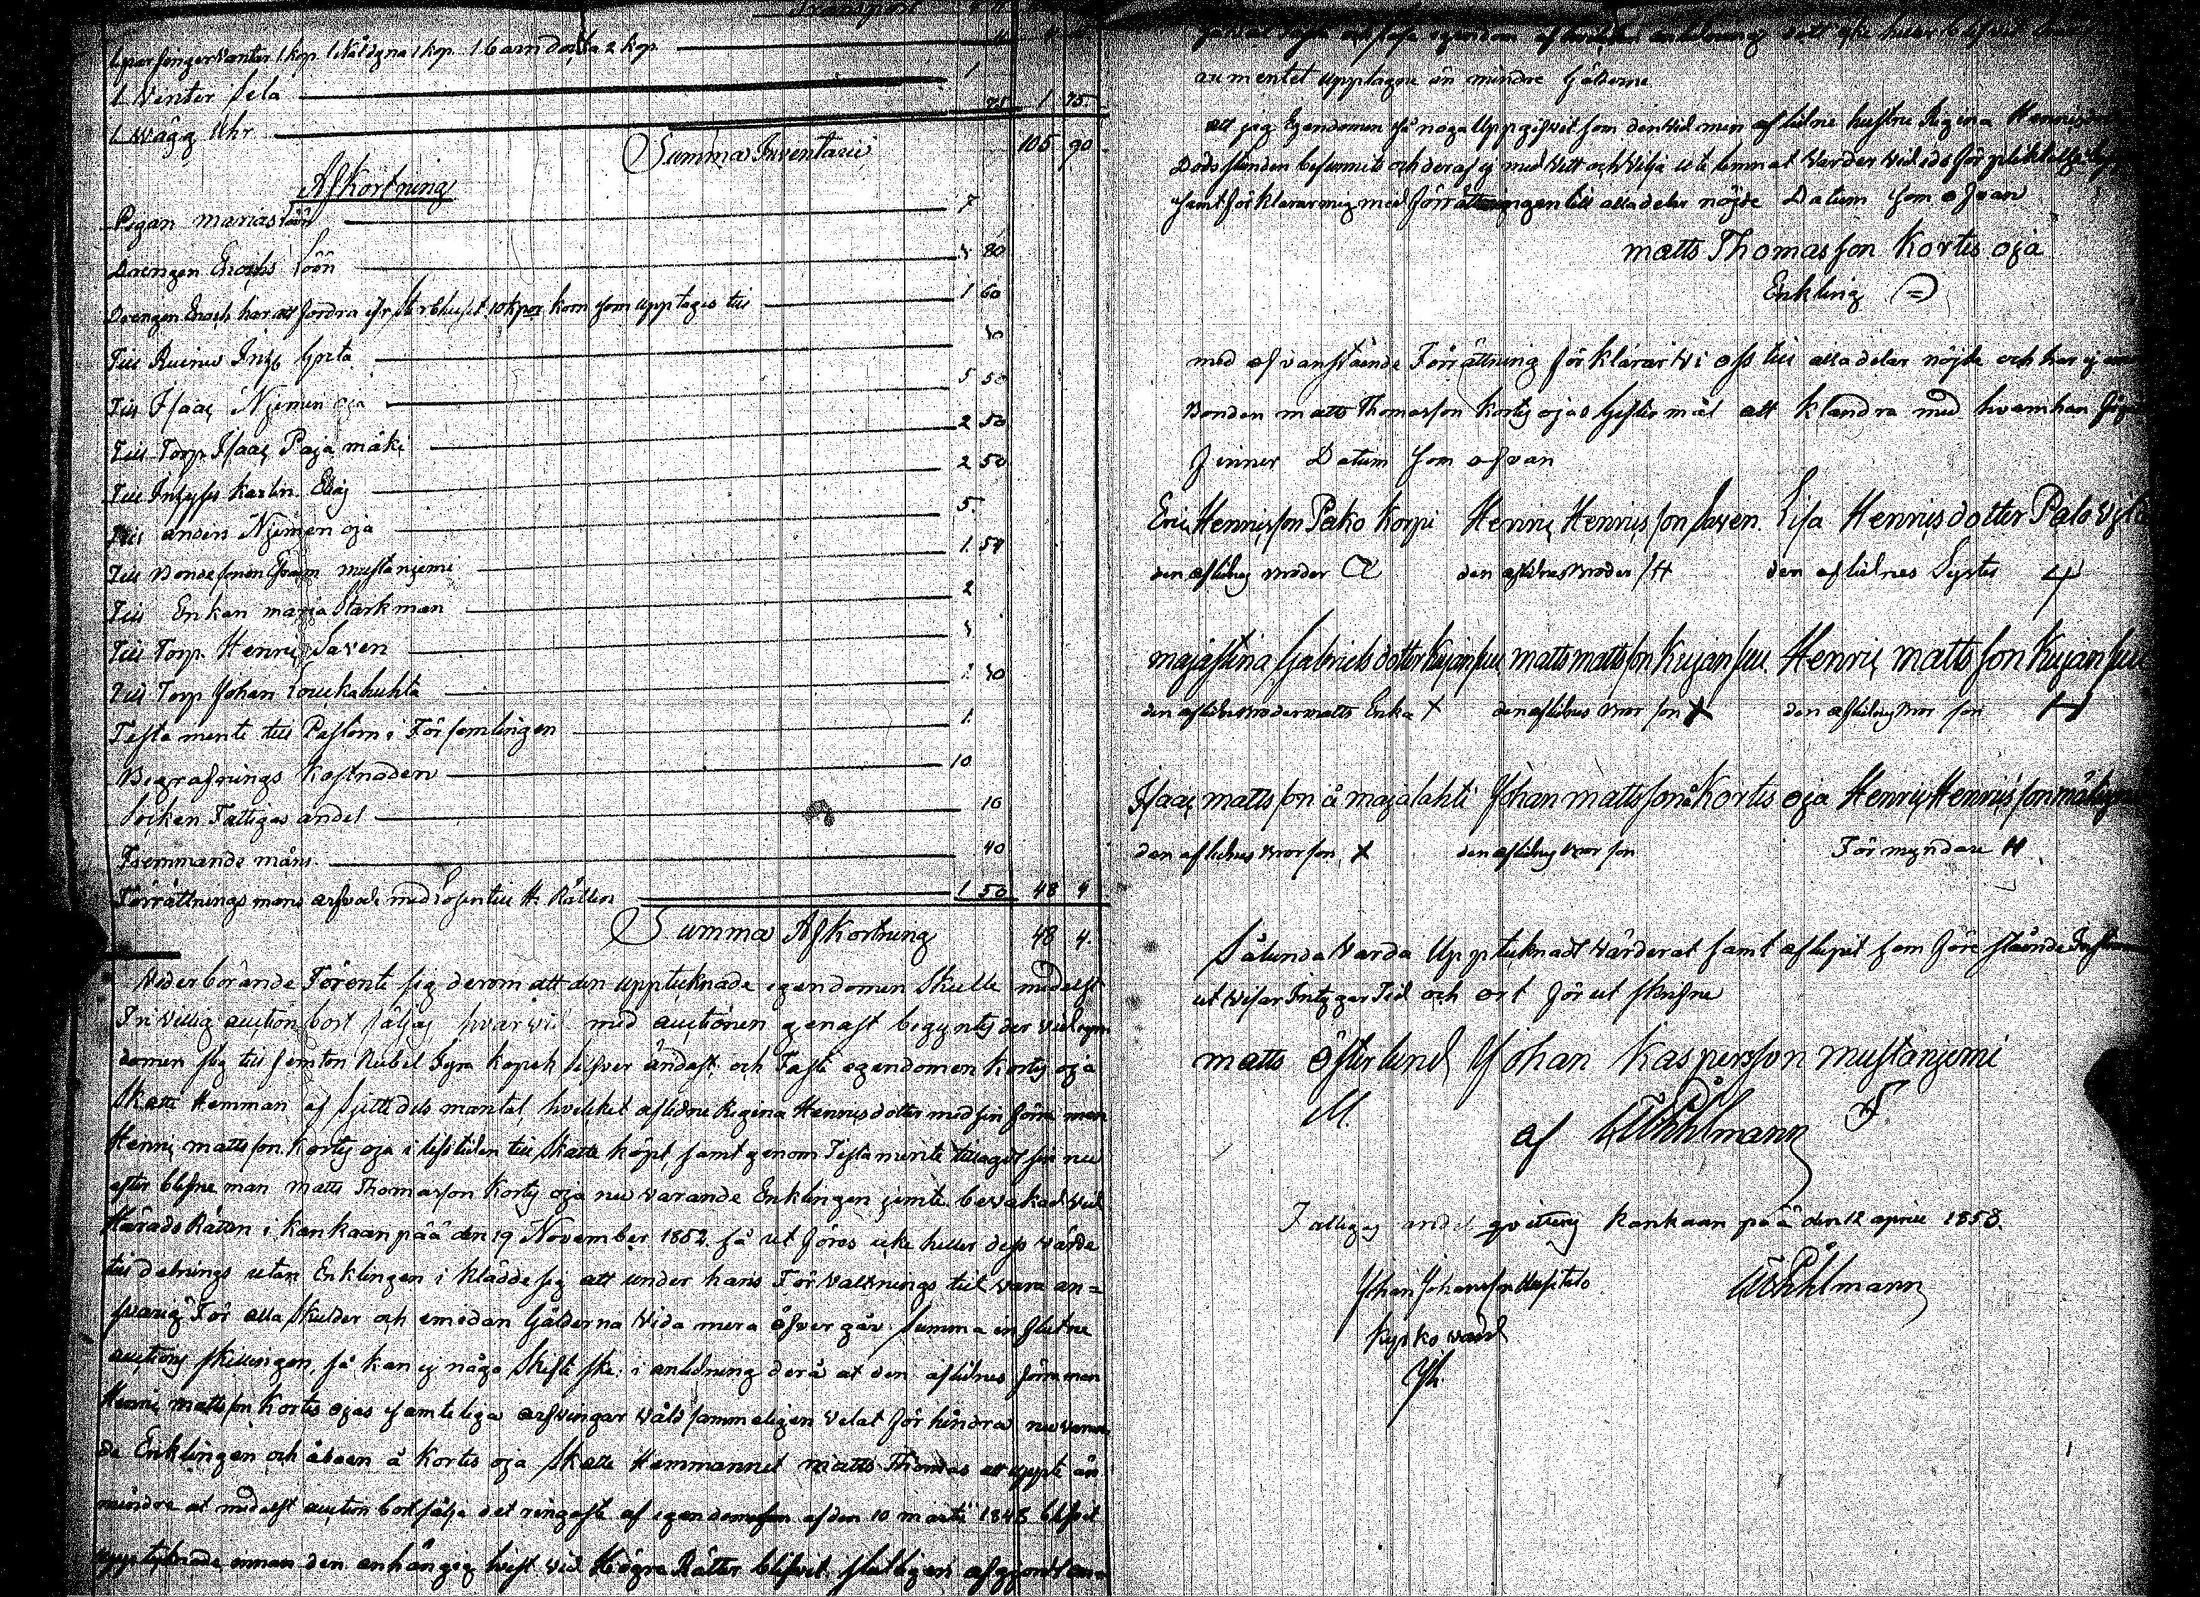 Transport
1 par fingervantar 1 kop. 1 Nåldyna 1 kop. 1 barn docka 2 kop 4
1 Venter sela 1
1 Vägg Uhr 75 1 75
Summa Inventarii 105 90
Afkortning
Pigan marias lön 7
Drengen Enochs lön 4 80
Drengen Enoch har att fordra af Sterbhuset 10 kpor korn som upptages till 1 60
Till Inh. Greta 40
Till Isaac Njemin oja 5 50
Till Torp. Isaac Paja mäki 2 50
Till Inhyses karlin Elias 2 50
Till anders Njemen oja 5
Till Bondesonen Efraim mustanjemi 1 54
Till Enkan maria Starkman 2
Till Torp. Henric Saxen
Till Torp Johan Loukahuhta 40
Testamente till Pastorn i Församlingen 1
Begrafnings Kostnaden 10
Socken Fattigas andel 10
Fremmande mäns 40
Förrättnings mäns arfvode med Lösen till H. Rätten 1 50 48 4
Summa Afkortning 48 4.
Vederbörande Förente sig derom att den upptecknade egendomen skulle medelst
Frivillig auction bort säljas hvarvid med auctionen genast begyntes der vid egen
domen steg till femton Rubel fyra kopek silfver ändast, och Fasta egendomen Kortes oja
Skatte Hemman af sjettedels mantal, hvilket aflidne Regina Henricsdotter med sin förra man
Henric mattsson Kortes oja i lifstiden till skatte köpt, samt genom Testamente tillagdt sin nu
efter blefne man matts Thomasson Kortes oja nu varande Enklingen jemte bevakad vid
Härads Rätten i Kankaanpää den 19 November 1852 så ut föres icke heller dess värde
till delnings utan Enklingen i klädde sig att under hans Förvaltnings tid vara an=
svarig För alla skulder och emedan Gälderna vida mera öfver går Summa in flutne
auctions skillingen, så kan ej någo Skifte ske i anledning deraf at den aflidnes förra man
Henric mattsson Kortes ojas samteliga arfvingar våldsammeligen velat för hindra nu varan
de Enklingen och åboen å Kortes oja Skatte Hemmannet matts Thomas att uppte än
mindre at medelst auction bortsälja det ringaste af egendomen af den 10 martii 1848 blifvit
upptecknade innan den anhängig tvist vid Högre Rätter blifvit slutligen afgjord
aumentet upptagen än mindre Gälderne
att jag Egendomen så noga Uppgifvit som den vid min aflidne hustru Regina Henricsdotter
Dödsstunden befunnits och deraf ej med Vett och Vilja ute lemnat Varder vid eds förpliktelse
samt förklarar mig med förrättningen till alla delar nöjde Datum som ofvan
matts Thomasson Kortes oja
Enkling
med ofvanstående Förrättning förklarar Vi oss till alla delar nöjde och har ej
Bonden matts Thomasson Kortes ojas Giftermål att klandra med hvem han
finner Datum som ofvan
Eric Henricsson Pako Korpi Henric Henricsson Saxen. Lisa Henricsdotter Palo
den aflidnes Broder den aflidnes Broder den aflidnes Syster
majastina Gabriels dotter Kujansuu matts mattsson Kujansuu. Henric mattsson Kujansuu
den aflidnes Broder matts Enka X den aflidnes Bror son X den aflidnes Bror son
Isaac mattsson å majalahti Johan mattsson å Kortes oja Henric Henricsson
den aflidnes Bror son X den aflidnes Bror son Förmyndare H
Sålunda Varda Upptecknadt Värderat samt aflupit som Förestående
utvisar Intygar Tid och ort Förut skrifne
matts Österlund Johan Kaspersson mustanjemi
M.
af Påhlmann
Fattigas andel qvitteras Kankaanpää den 12 april 1858.
Johan Johansson Påhlmann
Kyrko värd